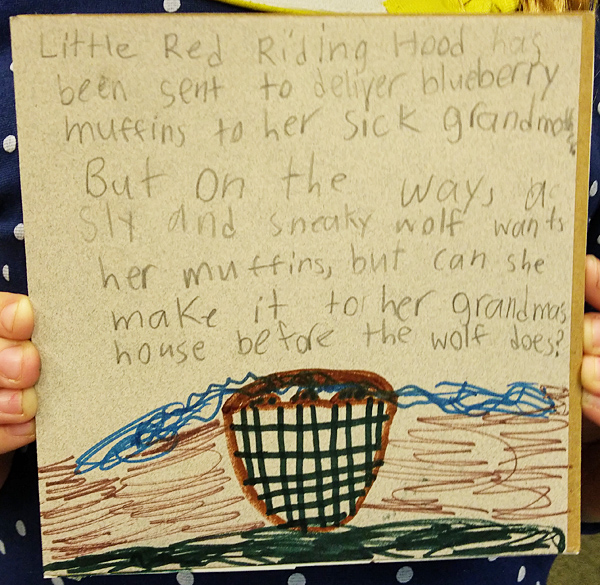 Little Red Riding Hood has
been sent to deliver blueberry
muffins to her sick grandmother.
But on the way, a
sly and sneaky wolf wants
her muffins, but can she
make it to her grandmas
house before the wolf does?